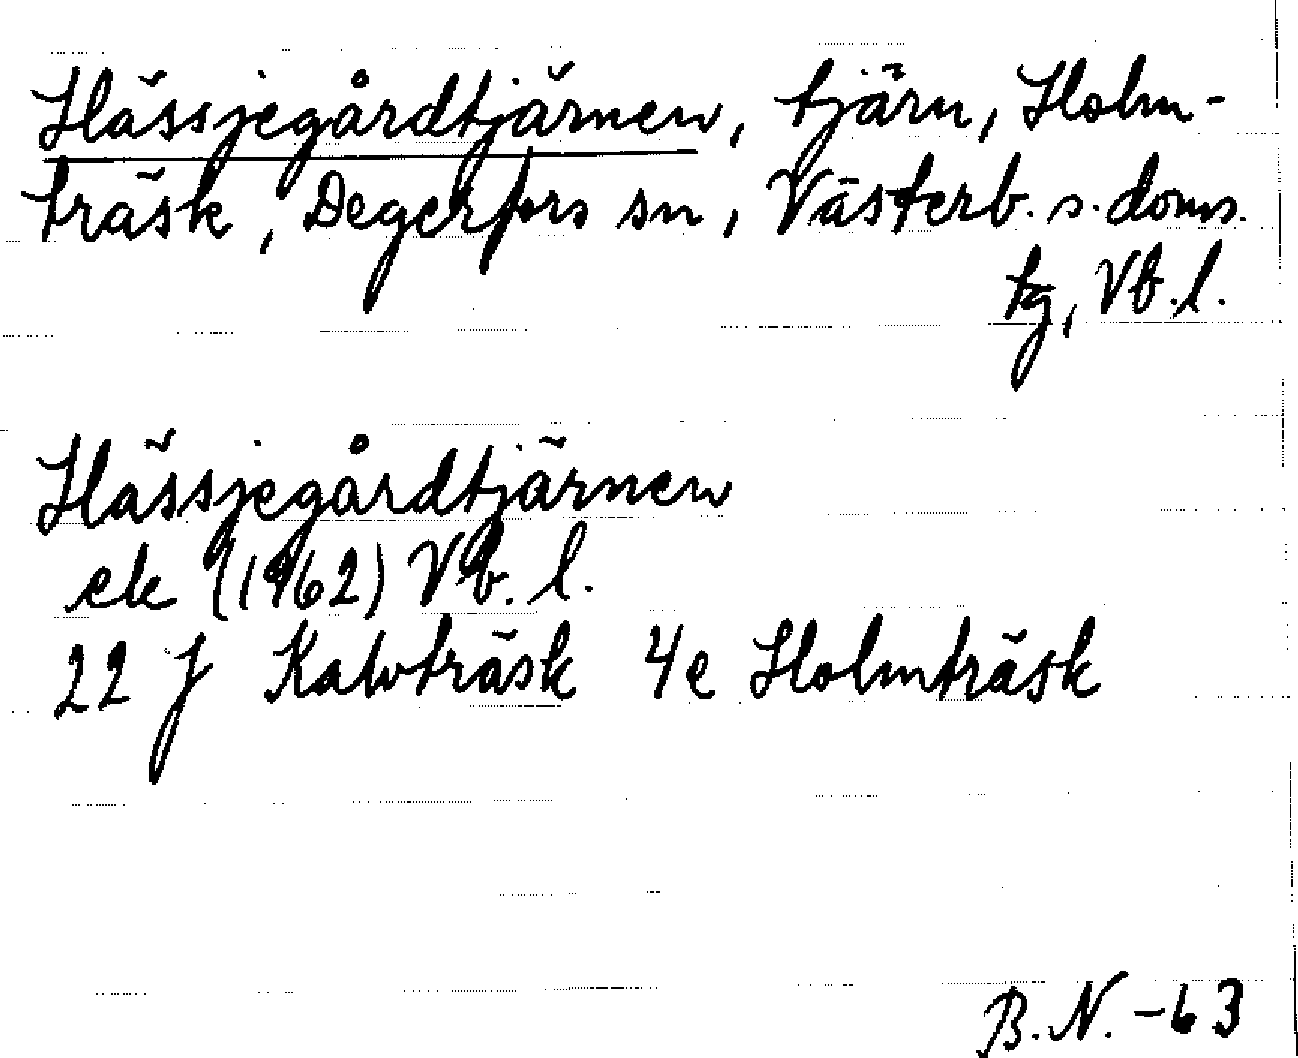 Hässjegårdtjärnen, tjärn, Holm-
träsk, Degerfors sn, Västerb. s. doms.
tg, Vb. l.
Hässjegårdtjärnen
ek (1962) Vb. l.
22 J Kalvträsk 4e Holmträsk
B. N. -63